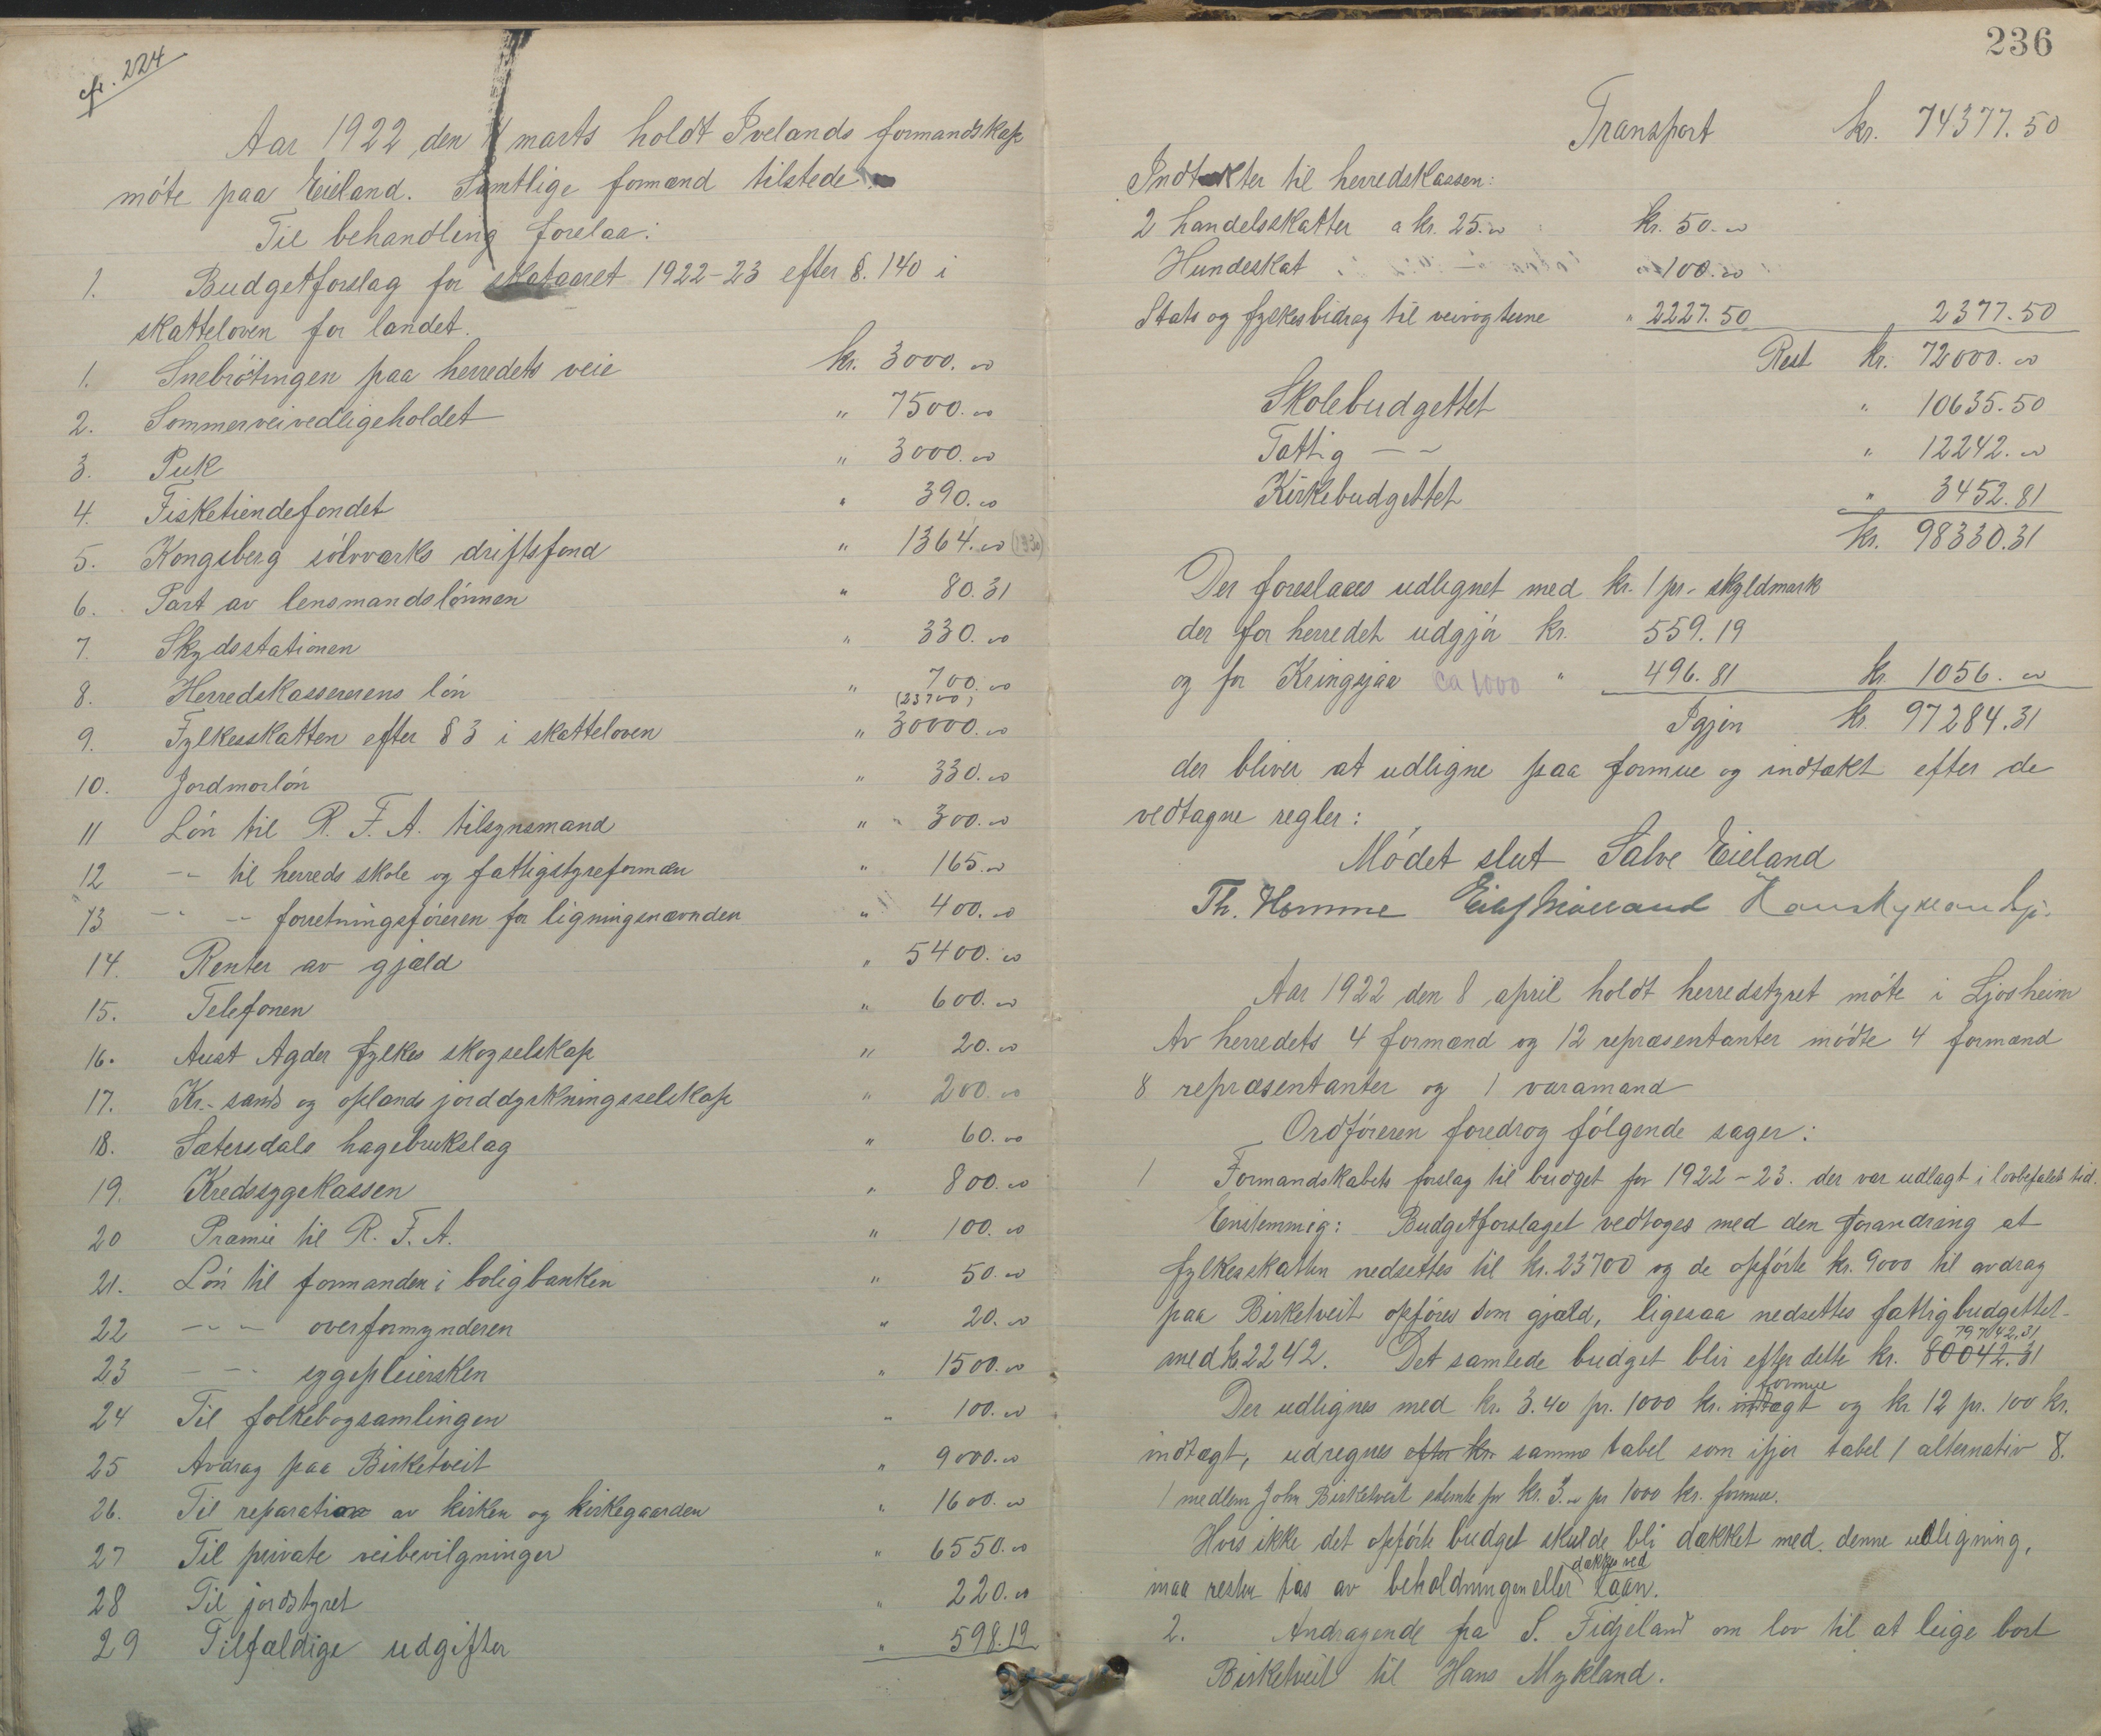 cfr. 224
Aar 1922 den 4 marts holdt Ivelands formandskap
møte paa Eieland. Samtlige formænd tilstede
Til behandling forelaa:
1. Budgetforslag for skataaret 1922-23 efter §. 140 i
skatteloven for landet.
1. Snebrøtingen paa herredets veie kr. 3000.00
2. Sommerveivedligeholdet " 7500.00
3. Puk " 3000.00
4. Fisketiendefondet " 390.00
5. Kongsberg sølvværks driftsfond " 1364.00 (1330)
6. Part av lensmandslønnen " 80.31
7. Skydsstationen " 330.00
8. Herredskassererens løn " 700.00
(23700)
9. Fylkesskatten efter § 3 i skatteloven " 30000.00
10. Jordmorløn " 330.00
11 Løn til R. F. A. tilsynsmand " 300.00
12 -"- til herreds skole og fattigstyreformæn " 165.00
13 -"- -"- forretningsføreren for ligningsnævnden " 400.00
14. Renter av gjæld " 5400.00
15. Telefonen " 600.00
16. Aust Agder fylkes skogselskap " 20.00
17. Kr.-sands og oplands jorddyrkningsselskap " 200.00
18. Sætersdals hagebrukslag " 60.00
19. Kredssygekassen " 800.00
20 Præmie til R. F. A. " 100.00
21. Løn til formanden i boligbanken " 50.00
22 -"- overformynderen " 20.00
23 -"- sygepleiersken " 1500.00
24 Til folkebogsamlingen " 100.00
25 Avdrag paa Birketveit " 9000.00
26. Til reparation av kirken og kirkegaarden " 1600.00
27 Til private veibevilgninger " 6550.00
28 Til jordstyret " 220.00
29 Tilfældige udgifter " 598.19
236
Transport kr. 74377.50
Indtækter til herredskassen:
2 handelsskatter a kr. 25.00 kr. 50.00
Hundeskat " 100.00
Stats og fylkesbidrag til veivogterne " 2227.50 2377.50
Rest kr. 72000.00
Skolebudgettet " 10635.50
Fattig -"- " 12242.00
Kirkebudgettet " 3452.81
kr. 98330.31
Der foreslaaes udlignet med kr. 1 pr. skyldmark
der for herredet udgjør kr. 559.19
og for Kringsjaa ca 1000 " 496.81 kr 1056.00
Igjen kr. 97284.31
der bliver at udligne paa formue og indtækt efter de
vedtagne regler:
Mødet slut Salve Eieland
Th. Homme
Aar 1922 den 8 april holdt herredstyret møte i Ljosheim
Av herredets 4 formænd og 12 repræsentanter mødte 4 formænd
8 repræsentanter og 1 varamand
Ordføreren foredrog følgende sager:
1 Formandskabets forslag til budget for 1922-23. der var udlagt i lovbefalet tid.
Enstemmig: Budgetforslaget vedtoges med den forandring at
fylkesskatten nedsettes til kr. 23700 og de opførte kr. 9000 til avdrag
paa Birketveit opføres som gjæld, ligesaa nedsettes fattigbudgettet
79742.31
med kr 2242. Det samlede budget blir efter dette kr. 80042.31
formue
Der udlignes med kr. 3.40 pr. 1000 kr. indtægt og kr 12 pr. 100 kr.
indtægt, udregnes efter kr. samme tabel som ifjor tabel 1 alternativ 8.
1 medlem John Birketveit stemte for kr. 3.00 pr 1000 kr. formue.
Hvis ikke det opførte budget skulde bli dækket med denne udligning,
dækkes ved
maa resten tas av beholdningen eller laan.
2. Andragende fra S. Fidjeland om lov til at leige bort
Birketveit til Hans Mykland.